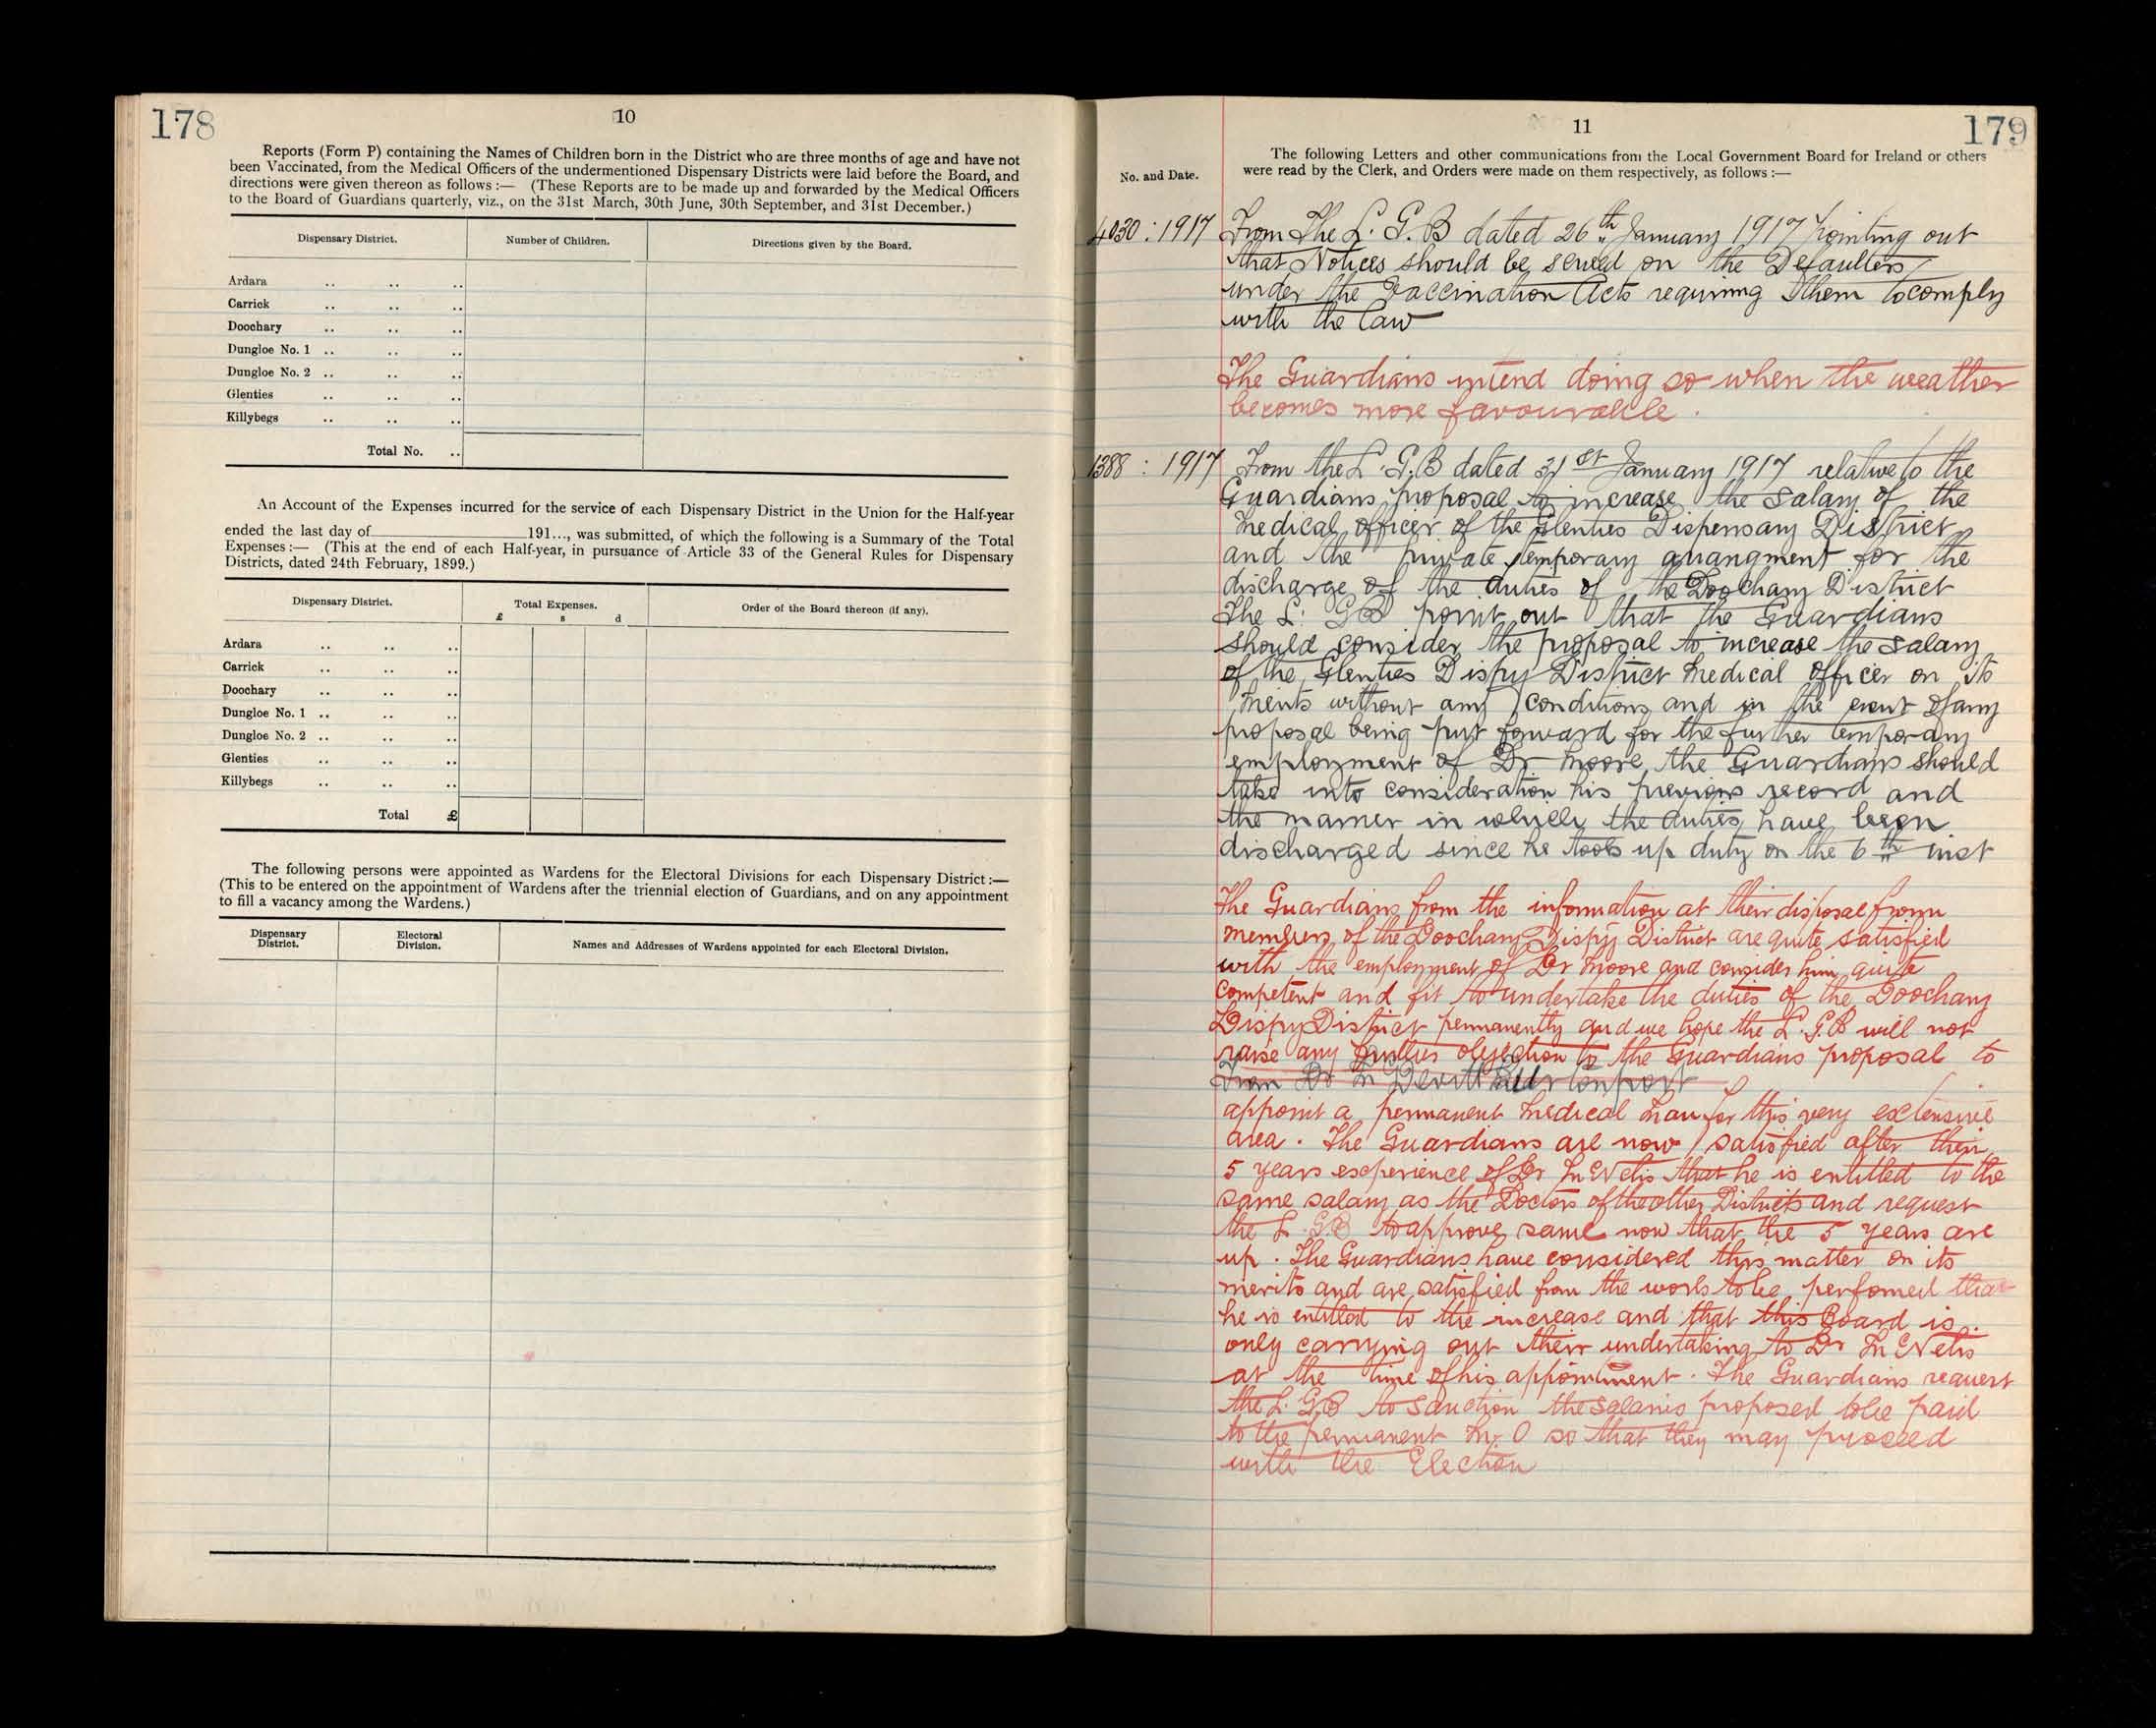 178
10
Reports (Form P) containing the Names of Children born in the District who are three months of age and have not
been Vaccinated, from the Medical Officers of the undermentioned Dispensary Districts were laid before the Board, and
directions were given thereon as follows :— (These Reports are to be made up and forwarded by the Medical Officers
to the Board of Guardians quarterly, viz., on the 31st March, 30th June, 30th September, and 31st December.)
Dispensary District. Number of Children. Directions given by the Board.
Ardara .. .. ..
Carrick .. .. ..
Doochary .. .. ..
Dungloe No. 1 .. .. ..
Dungloe No. 2 .. .. ..
Glenties .. .. ..
Killybegs .. .. ..
Total No. ..
An Account of the Expenses incurred for the service of each Dispensary District in the Union for the Half-year
ended the last day of 191..., was submitted, of which the following is a Summary of the Total
Expenses :— (This at the end of each Half-year, in pursuance of Article 33 of the General Rules for Dispensary
Districts, dated 24th February, 1899.)
Dispensary District. Total Expenses. Order of the Board thereon (if any).
£ s d
Ardara .. .. ..
Carrick .. .. ..
Doochary .. .. ..
Dungloe No. 1 .. .. ..
Dungloe No. 2 .. .. ..
Glenties .. .. ..
Killybegs .. .. ..
Total £
The following persons were appointed as Wardens for the Electoral Divisions for each Dispensary District :—
(This to be entered on the appointment of Wardens after the triennial election of Guardians, and on any appointment
to fill a vacancy among the Wardens.)
Dispensary District. Electoral Division. Names and Addresses of Wardens appointed for each Electoral Division.
11
179
No. and Date.
The following Letters and other communications from the Local Government Board for Ireland or others
were read by the Clerk, and Orders were made on them respectively, as follows :—
4030 : 1917 From The L. G. B dated 26th January 1917 pointing out
that Notices should be served on the Defaulters
under the Vaccination Acts requiring them to comply
with the law
The Guardians intend doing so when the weather
becomes more favourable.
1388 : 1917 From the L. G. B dated 31st January 1917 relative to the
Guardians proposal to increase the salary of the
Medical officer of the Glenties Dispensary District
and the private temporary arrangment for the
discharge of the duties of the Doochary District
The L. G B point out that the Guardians
should consider the proposal to increase the salary
of the Glenties Dispy District Medical officer on its
merits without any conditions and in the event of any
proposal being put forward for the further temporary
employment of Dr Moore, the Guardians should
take into consideration his previous record and
the manner in which the duties have been
discharged since he took up duty on the 6th inst
The Guardians from the information at their disposal from
members of the Doochary Dispy District are quite satisfied
with the employment of Dr Moore and consider him quite
competent and fit to undertake the duties of the Doochary
Dispy District permanently and we hope the L. G. B will not
raise any further objection to the Guardians proposal to
From Dr
appoint a permanent Medical Man for this very extensive
area. The Guardians are now satisfied after their
5 years experience of Dr McNelis that he is entitled to the
same salary as the Doctors of the other Districts and request
the L. G. B to approve same now that the 5 years are
up. The Guardians have considered this matter on its
merits and are satisfied from the work to be performed that
he is entitled to the increase and that this Board is
only carrying out their undertaking to Dr McNelis
at the time of his appointment. The Guardians request
the L. G B to sanction the salaries proposed to be paid
to the permanent M. O so that they may proceed
with the Election